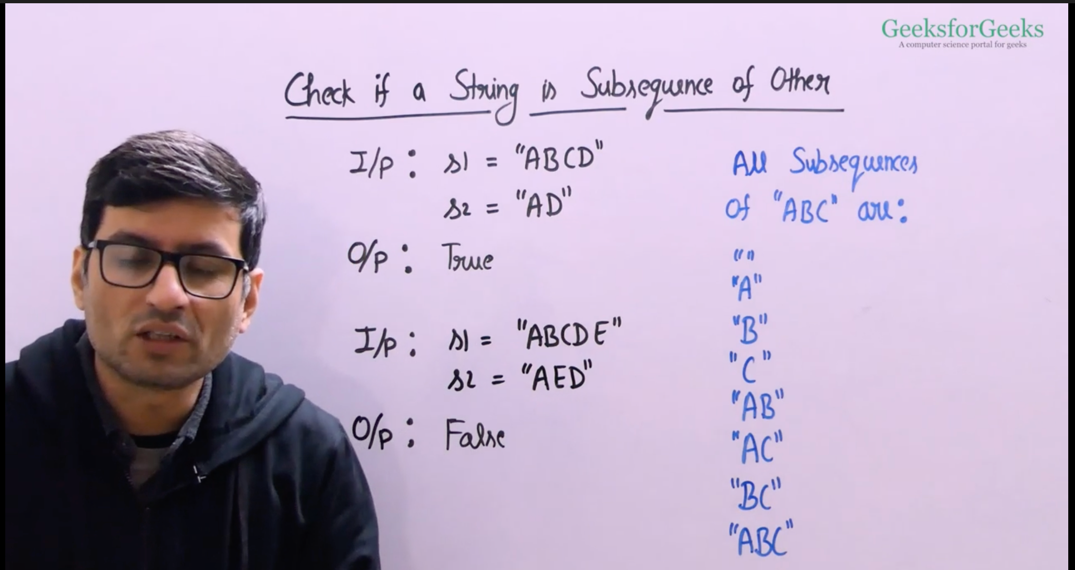 GeeksforGeeks
A computer science portal for geeks
Check if a String is Subsequence of Other
I/p : s1 = "ABCD"
s2 = "AD"
O/p : True
I/p : s1 = "ABCDE"
s2 = "AED"
O/p : False
All Subsequences
Of "ABC" are :
""
"A"
"B"
"C"
"AB"
"AC"
"BC"
"ABC"